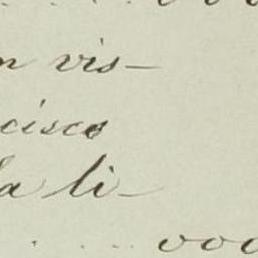 n vis-
cisco
la li-
. . . . 000